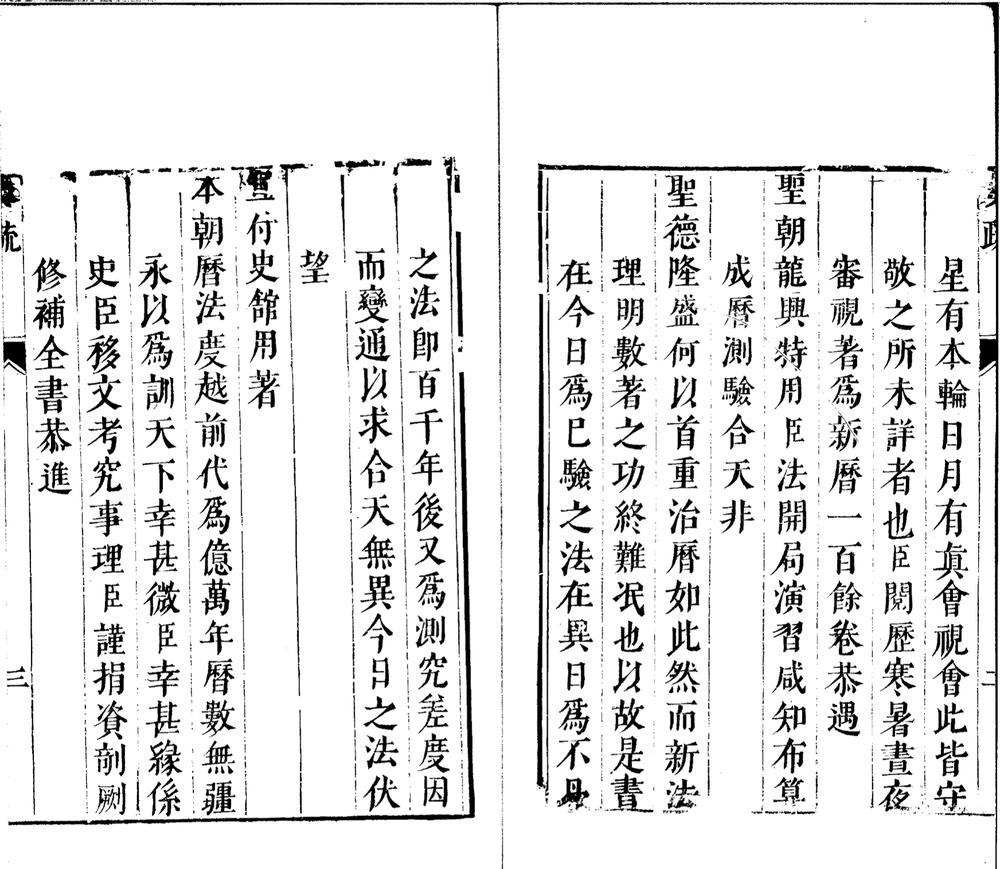 疏
二
星有本輪日月有眞會視會此皆守
敬之所未詳者也臣閱歷寒暑晝夜
審視著爲新曆一百餘卷恭遇
聖朝龍興特用臣法開局演習咸知布算
成曆測驗合天非
聖德隆盛何以首重治曆如此然而新法
理明數著之功終難泯也以故是書
在今日爲已驗之法在異日爲不
之法卽百千年後又爲測究差度因
而變通以求合天無異今日之法伏
望
宣付史館用著
本朝曆法度越前代爲億萬年曆數無疆
永以爲訓天下幸甚微臣幸甚緣係
史臣移文考究事理臣謹捐資剞劂
修補全書恭進
疏
三